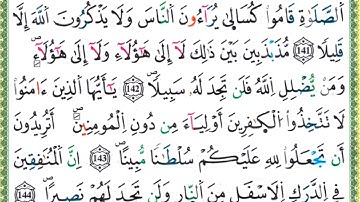 اَ۬لصَّلَوٰةِ قَامُواْ كُسَال۪يٰ يُرَآءُونَ اَ۬لنَّاسَ وَلَا يَذْكُرُونَ اَ۬للَّهَ إِلَّا
قَلِيلاٗ 141 مُّذَبْذَبِينَ بَيْنَ ذَٰلِكَ لَآ إِلَىٰ هَٰٓؤُلَآءِ وَلَآ إِلَىٰ هَٰٓؤُلَآءِۖ
وَمَنْ يُّضْلِلِ اِ۬للَّهُ فَلَن تَجِدَ لَهُۥ سَبِيلاٗۖ 142 يَٰٓأَيُّهَا اَ۬لذِينَ ءَامَنُواْ
لَا تَتَّخِذُواْ اُ۬لْكٰ۪فِرِينَ أَوْلِيَآءَ مِن دُونِ اِ۬لْمُومِنِينَۖ أَتُرِيدُونَ
أَن تَجْعَلُواْ لِلهِ عَلَيْكُمْ سُلْطَٰناٗ مُّبِيناًۖ 143 إِنَّ اَ۬لْمُنَٰفِقِينَ
فِے اِ۬لدَّرَكِ اِ۬لَاسْفَلِ مِنَ اَ۬لنّ۪ارِ وَلَن تَجِدَ لَهُمْ نَصِيراًۖ 144